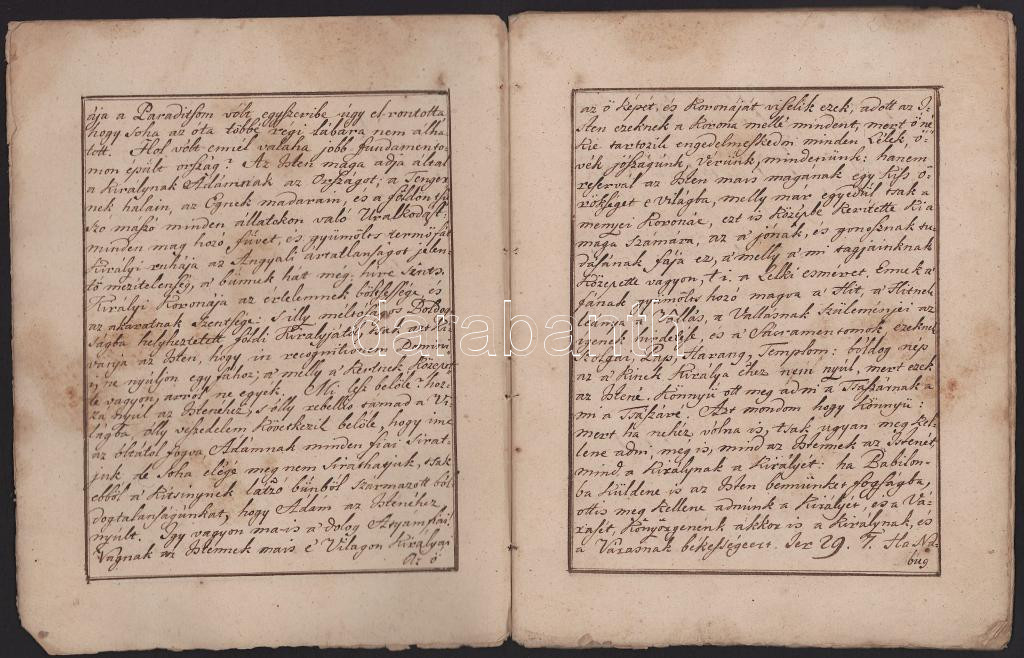 ája a Paraditsom vólt egyszeribe úgy el rontotta
hogy soha az óta többé régi lábára nem álha
tott. Hol vólt ennél valaha jobb fundamento-
mon épült ország? Az Isten maga adja által
a Királynak Ádámnak az Országot, a Tenger
nek halain, az Égnek madarain, és a földön
szo mászó minden állatokon való Uralkodást;
minden mag hozó füvet, és gyümölts termő fát
Királyi ruhája az Angyali ártatlanságot jelen-
tő mezitelenség, a bűnnek hat meg, hire sints.
Királyi Koronája az értelemnek böltsesége és
az akaratnak Szentsége: s illy méltóságos Boldog
ságba helyheztetett földi Királyjától csak azt ki
vánja az Isten, hogy in recognitionem Domini
i ne nyúljon egy fához, a melly a Kertnek Közepet
te vagyon, arról ne egyék. Mi lesz belőle? hoz-
zá nyúl az Istenéhez, s olly rebellio támad a Vi-
lágba olly veszedelem következik belőle, hogy ime
az óltától fogva Ádámnak minden fiai Sirat-
juk de soha elégé meg nem sirathatjuk, tsak
ebből a kitsinynek látzó bűnből származott bol-
dogtalanságunkat, hogy Ádám az Istenéhez
nyúlt. Igy vagyon ma is a dolog Atyámfiai!
Vagnak az Istennek ma is é Világon Királyai
Az ő
az ő képét és Koronáját viselik ezek, adott az I-
sten ezeknek a Korona mellé mindent, mert ő né
kie tartozik engedelmeskedni minden Lélek, ő-
vék jószágunk, Vérünk, mindenünk: hanem
reservál az Isten ma is magának egy kiss ö-
rökséget e világba, melly már egyedül tsak a
menyei Koronáé, ezt is középbe kerítette ki a
maga számára, az a jónak, és gonosznak tu-
dásának fája ez, a melly a mi tagjainknak
közepette vagyon, t. i. a Lelki esméret. Ennek a
fának gyümölts hozó magva a Hit, a Hitnek
leánya a Vallás, a Vallásnak Szüleményei az
igének hirdetése és a Sacramentomok, ezeknek
szolgái, Pap, Harang, Templom: boldog nép
az a kinek Királya ehez nem nyúl, mert ezek
az Istené. Könnyü ott meg adni a Tsászárnak a
mi a Tsászáré. Azt mondom hogy könnyü:
mert ha nehéz vólna is, tsak ugyan meg kel-
lene adni, meg is, mind az Istennek az Istenét
mind a Királynak a Királyét: ha Babilon-
ba küldene is az Isten bennünket fogságba,
ottis meg kellene adnunk a Királyét, és a Vá-
rasét, Könyörgenénk akkor is a Királynak, és
a Városnak békességéért. Jer 29. 7. Ha Na-
bug
darabanth